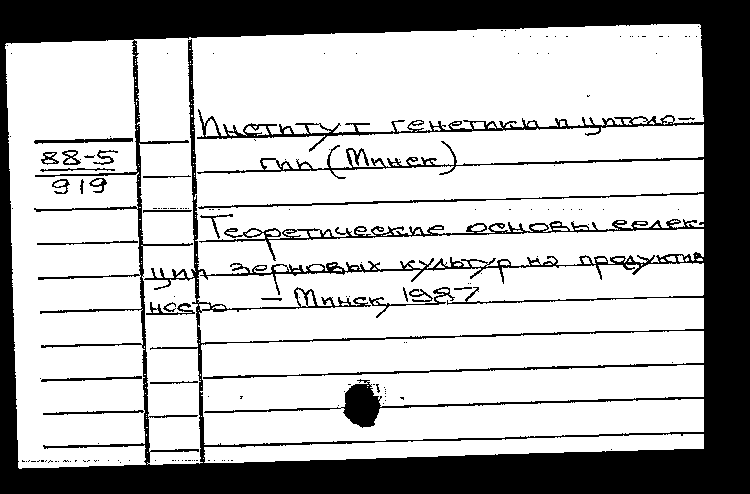 Институт генетики и цитоло-
гии (Минск)
88-5
919
Теоретические основы селек-
ции зерновых культур на продуктив
ность. – Минск, 1987